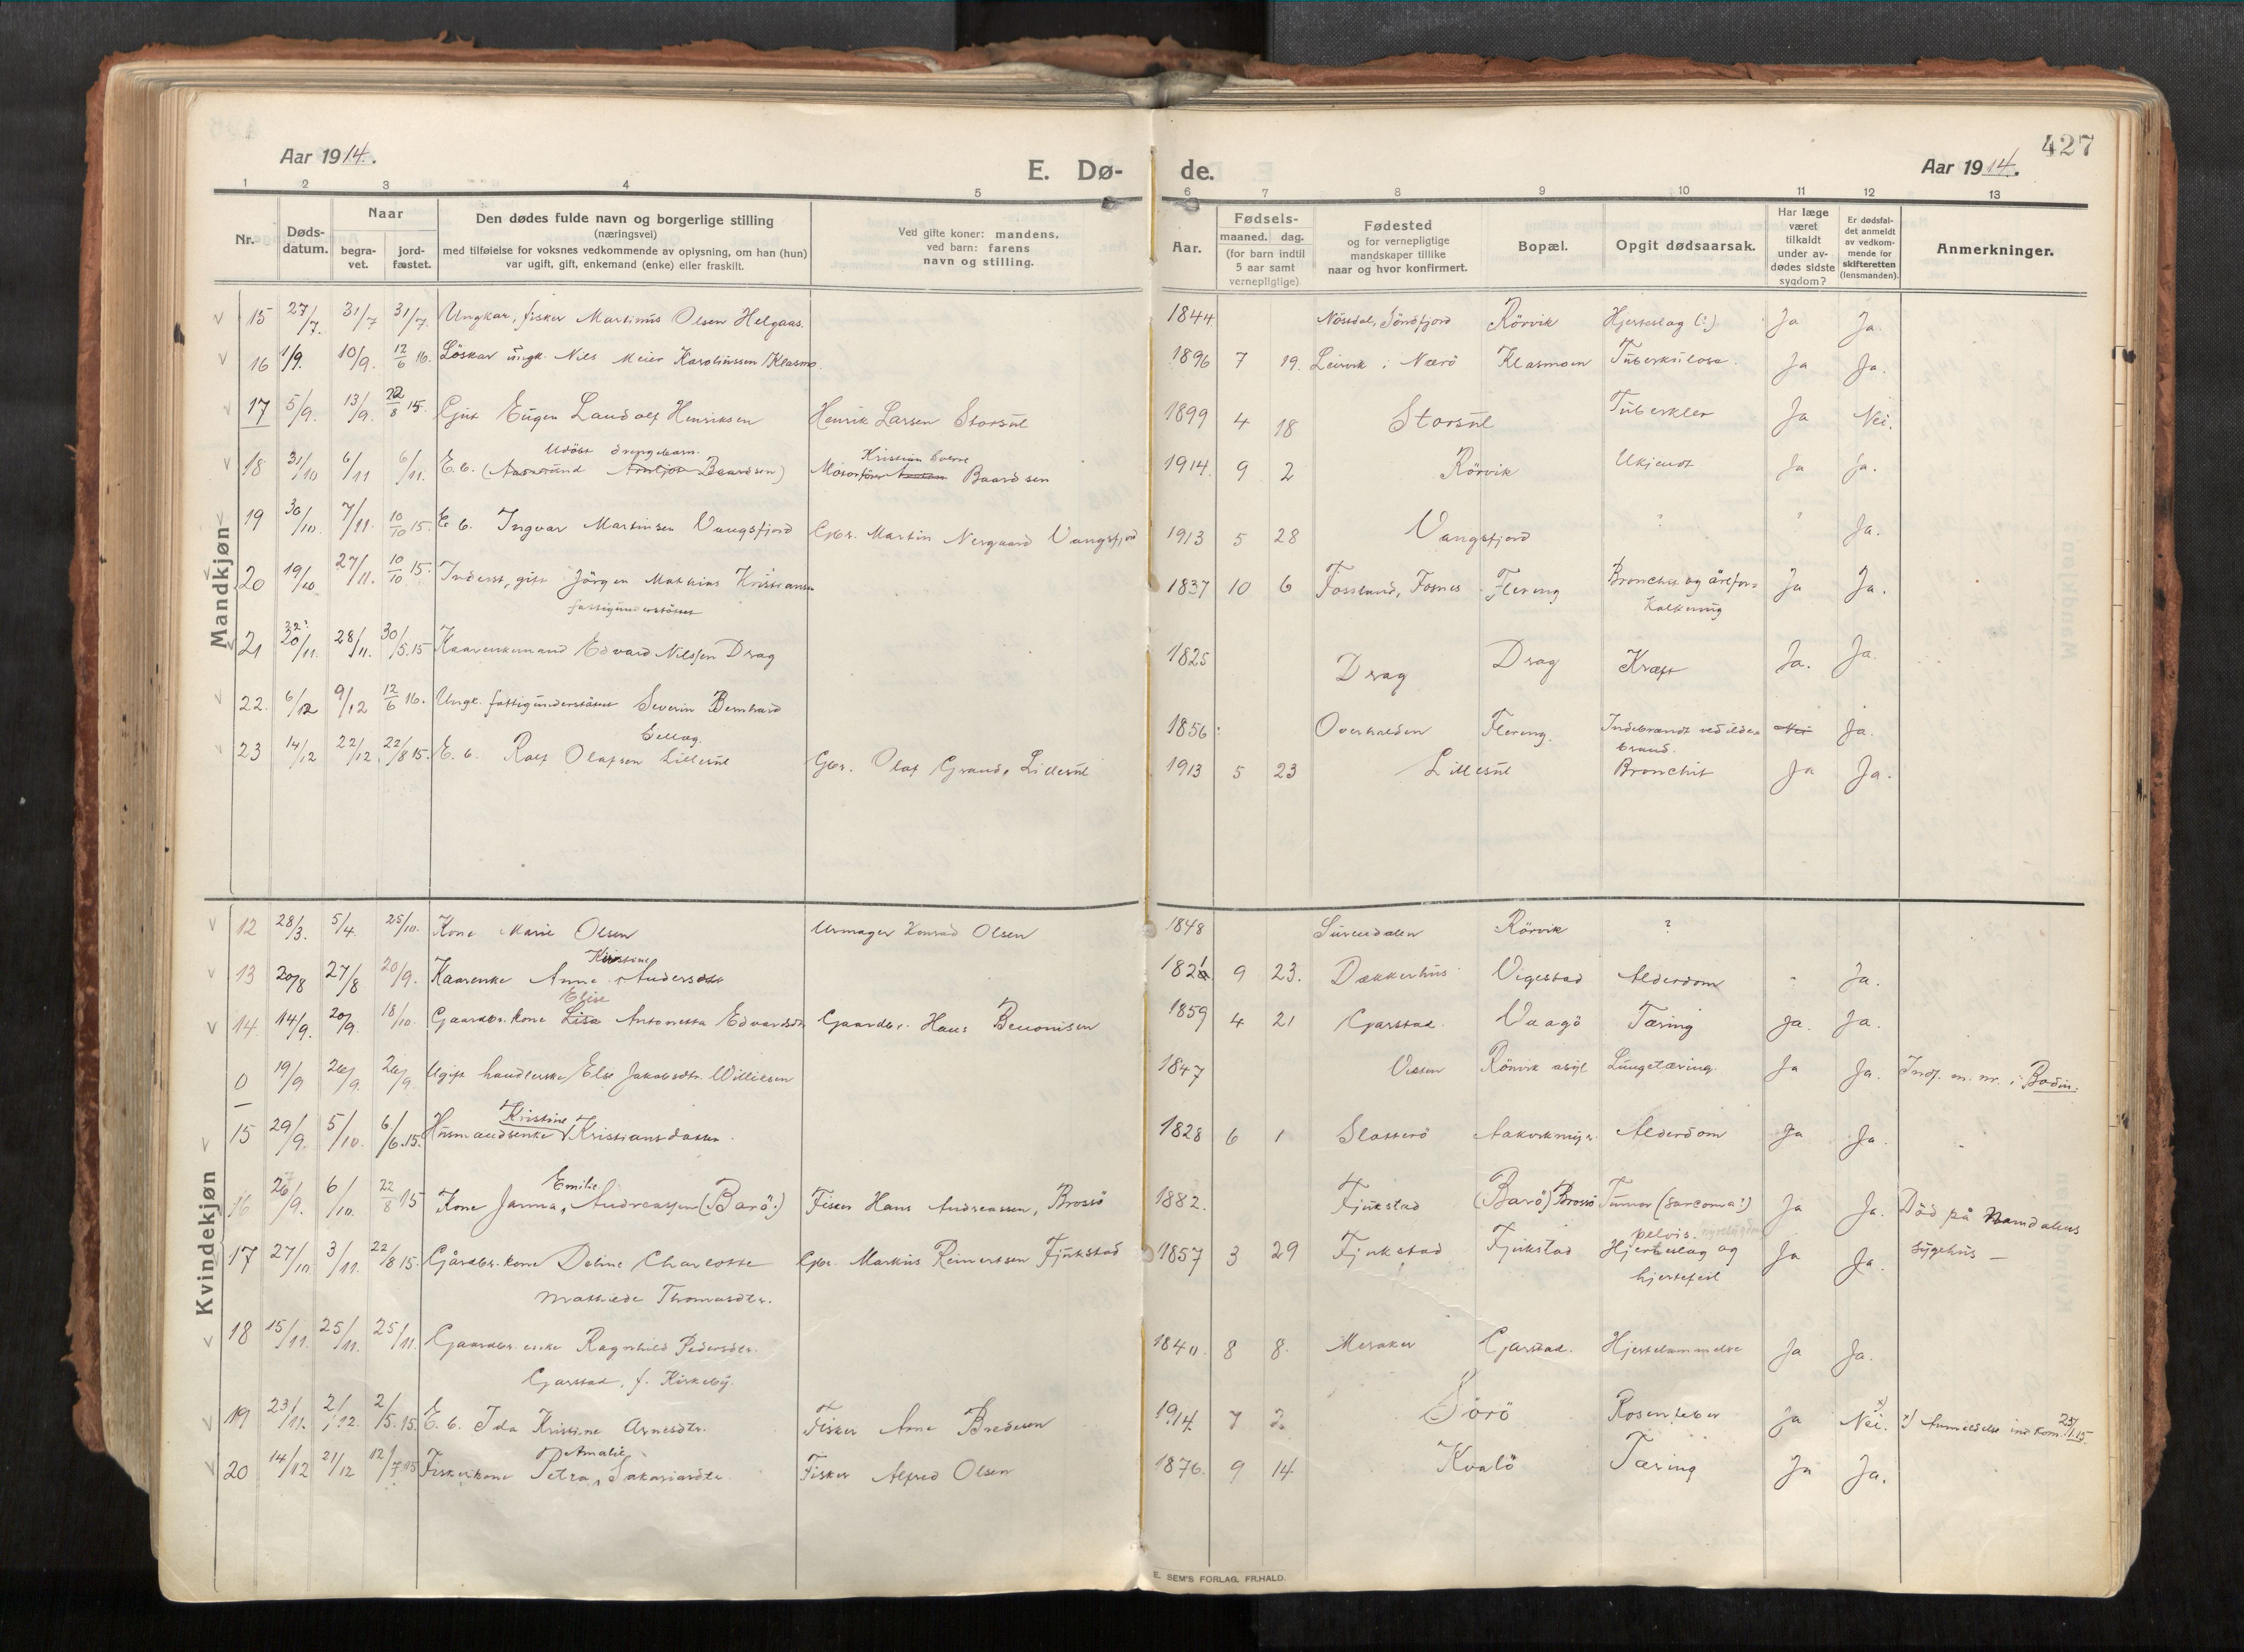 427
Aar 1914.
E. Dø- de.
Aar 1914.
1 2 3 4 5 6 7 8 9 10 11 12 13
Nr.
Døds-
datum.
Naar
begra-
vet.
jord-
fæstet.
Den dødes fulde navn og borgerlige stilling
(næringsvei)
med tilføielse for voksnes vedkommende av oplysning, om han (hun)
var ugift, gift, enkemand (enke) eller fraskilt.
Ved gifte koner: mandens,
ved barn: farens
navn og stilling.
Aar.
Fødsels-
maaned. dag.
(for barn indtil
5 aar samt
vernepligtige)
Fødested
og for vernepligtige
mandskaper tillike
naar og hvor konfirmert.
Bopæl.
Opgit dødsaarsak.
Har læge
været
tilkaldt
under av-
dødes sidste
sygdom?
Er dødsfal-
det anmeldt
av vedkom-
mende for
skifteretten
(lensmanden).
Anmerkninger.
Mandkjøn
15 27/7. 31/7 31/7. Ungkar, fisker Martinus Olsen Helgaas. 1844 Nösdal, Söndfjord Rörvik Hjerteslag (?) Ja Ja
16 1/9. 10/9. 12/6 16. Löskar ungk. Nils Meier Karoliussen Klasmo. 1896 7 19. Leirvik i Nærö Klasmoen Tuberkulose. Ja Ja.
17 5/9. 13/9. 22/8 15. Gut Eugen Laudolf Henriksen Henrik Larsen Storsul 1899 4 18 Storsul Tuberkler Ja Nei.
Udöbt drengebarn. Kristian Sverre
18 31/10 6/11 6/11. E. b. (Aasmund Arnljot Baardsen) Motorförer Baardsen 1914. 9 2 Rörvik Ukjendt Ja Ja.
19 30/10. 7/11. 10/10 15. E. b. Ingvar Martinsen Vangsfjord Gbr. Martin Nergaard Vangsfjord 1913 5 28 Vangsfjord ? ? Ja.
20 19/10. 27/11. 10/10 15. Inderst, gift Jörgen Mathias Kristiansen 1837 10 6 Fosslund, Fosnes Flereng Bronchit og åref­or- Ja Ja.
fattigunderstöttet kalkning
22?
21 20/11. 28/11. 30/5.15 Kaarenkemand Edvard Nilssen Drag 1825 Drag Drag Kræft Ja. Ja.
22. 6/12 9/12 12/6 16. Ungk. fattigunderstöttet Severin Bernhard 1856. Overhalden Flereng. Indebrændt ved ildes- Nei Ja.
Sellæg. brand.
23 14/12 22/12 22/8 15. E. b. Rolf Olafsen Lillesul Gbr. Olaf Grande, Lillesul 1913 5 23 Lillesul Bronchit Ja Ja.
Kvindekjøn
12 28/3. 5/4. 25/10. Kone Marie Olsen Urmager Konrad Olsen 1848 Surendalen Rörvik ?
Kirstine
13 20/8 27/8 20/9. Kaarenke Anne Andersdtr 1821 9 23. Dækkerhus Vigestad Alderdom - Ja.
Elise
14. 14/9. 20/9. 18/10. Gaardbr. kone Lisa Antonetta Edvardsdtr Gaardbr. Hans Benonisen 1859 4 21 Garstad. Vaagö Tæring Ja. Ja.
0 19/9 26/9. 26/9. Ugift handlerske Else Jakobsdtr. Willielsen 1847 Rönvik asyl Lungetæring. Ja Ja. Indf. m. nr. i Bodin.
Kristine
15 29/9. 5/10. 6/6.15. Husmandsenke Kristiansdatter. 1828 6 1 Slotterö Alderdom Ja Ja. -
Emilie
16 26/9. 6/10. 22/8 15 Kone Janna, Andreassen (Barö.) Fisker Hans Andreassen, Brossö 1882. Fjukstad (Barö) Brossö Tumor (Sarcoma?) Ja Ja. Död på Namdalens
pelvis. sygehus -
17 27/10. 3/11. 22/8 15. Gårdbr. kone Doline Charlotte Gbr. Markus Reinertsen Fjukstad 1857 3 29 Fjukstad Fjukstad Hjerteslag og Ja Ja.
Mathilde Thomasdtr. hjertefeil
18 15/11. 25/11. 25/11. Gaardbr. enke Ragnhild Pedersdtr. 1840. 8 8. Meraker Garstad. Hjertelammelse Ja Ja.
Garstad, f. Kirkeby.
19 23/11. 2/12. 2/5.15. E. b. Ida Kristine Arnesdtr. Fisker Arne Bredesen 1914. 7 2. Sörö Rosenfeber Ja Nei. x) x) Anmeldelse indkom. 23/1.15.
Amalie
20 14/12 21/12 12/7 15 Fiskerkone Petra, Sakariasdtr. Fisker Alfred Olsen 1876. 9 14 Kvalö Tæring Ja Ja.
E. SEM'S FORLAG, FR.HALD.